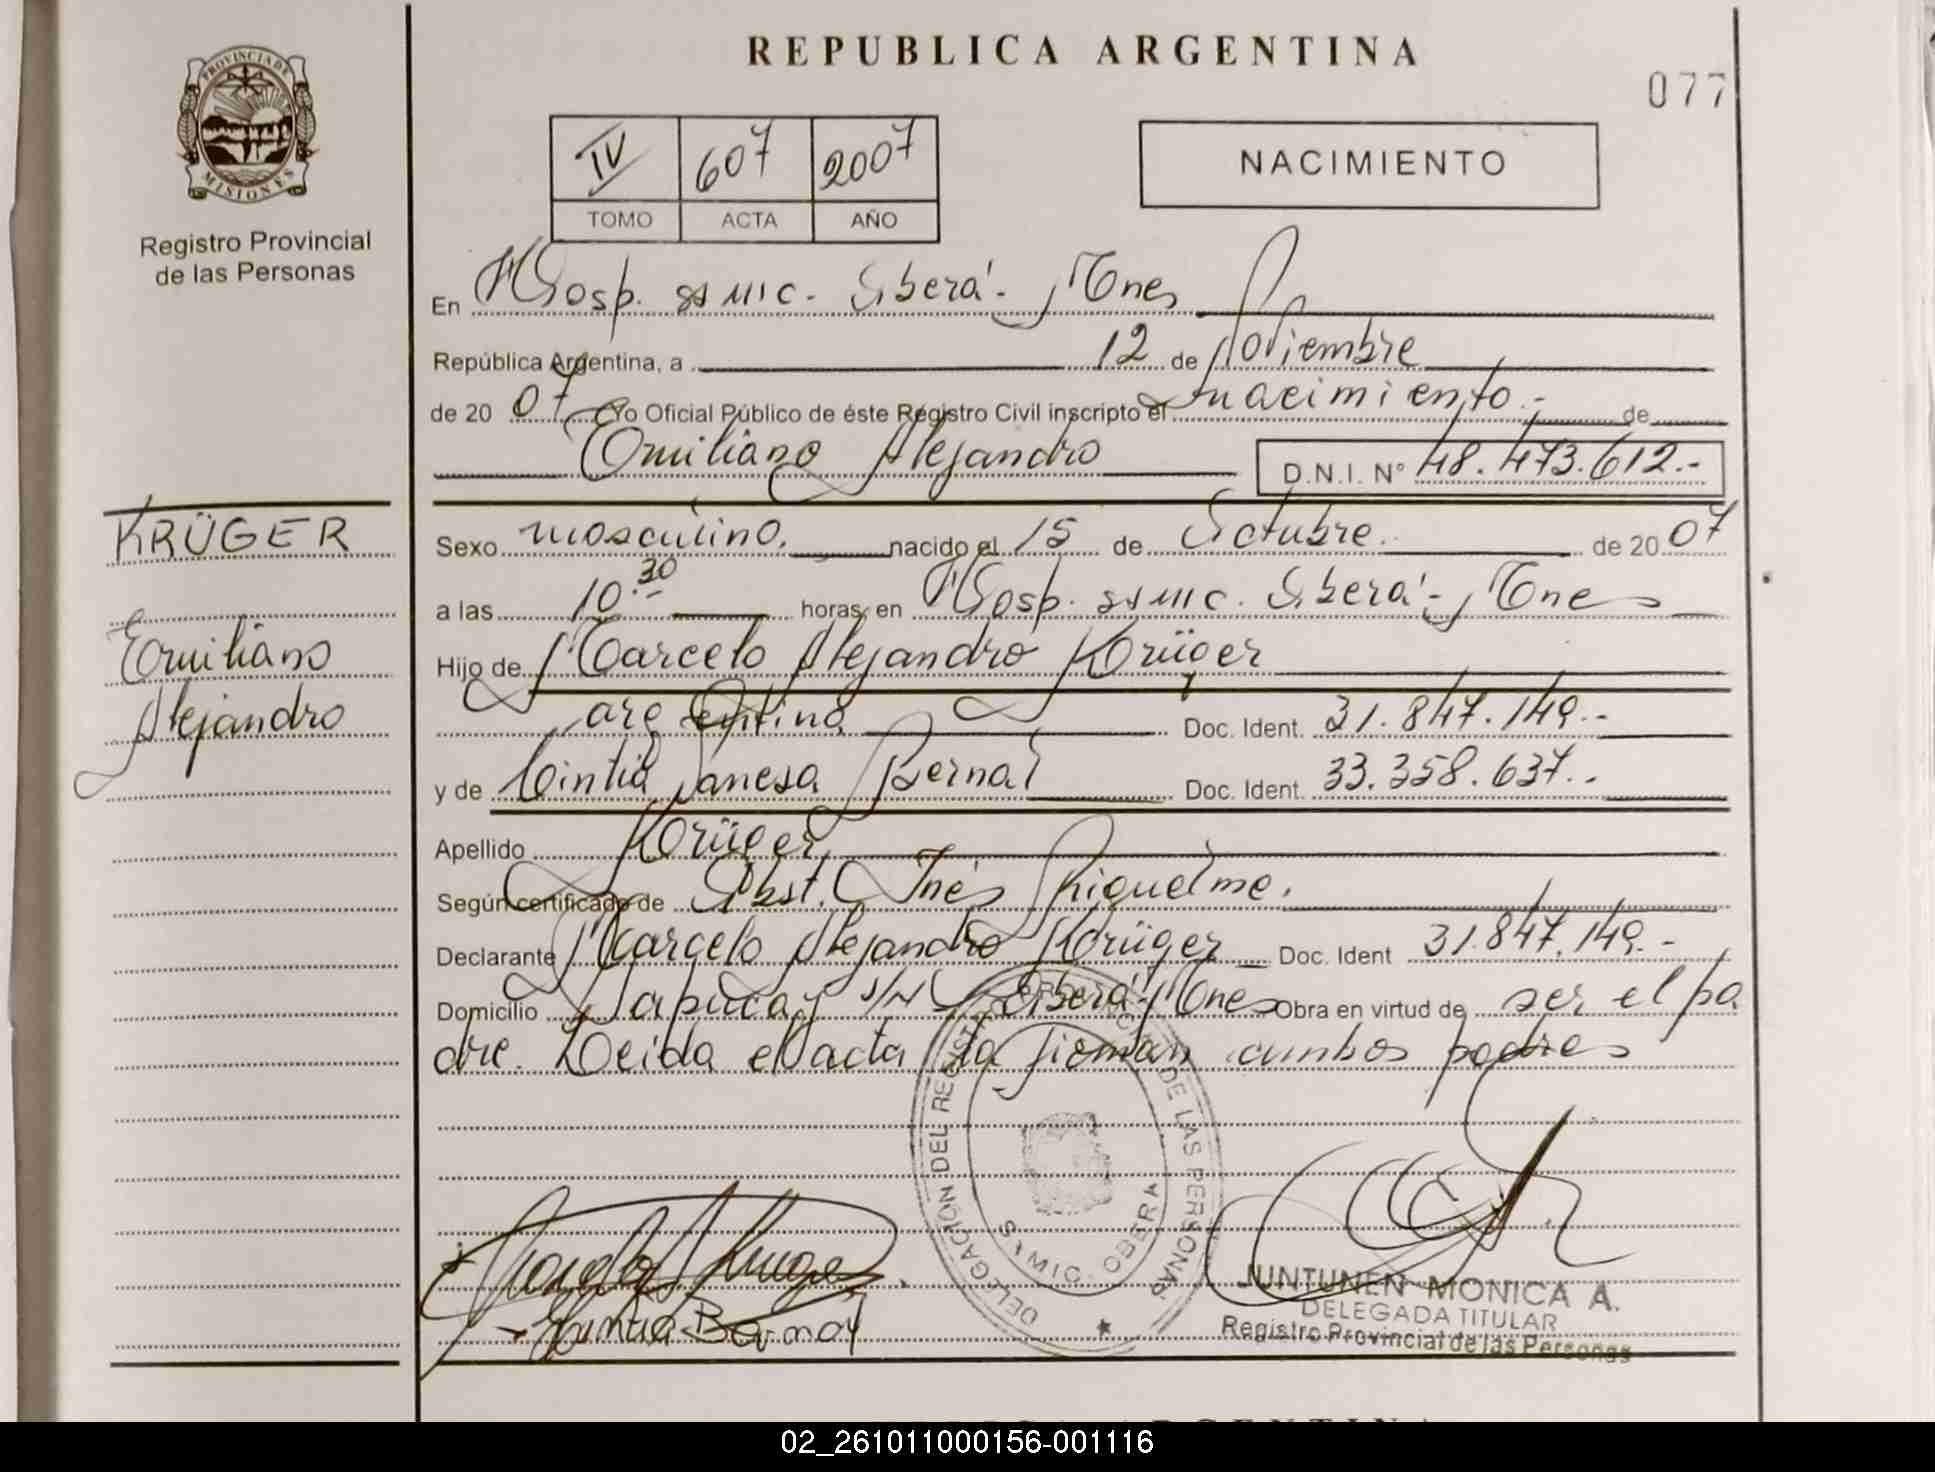 REPUBLICA ARGENTINA
077
PROVINCIA DE
MISIONES
Registro Provincial
de las Personas
IV 607 2007
TOMO ACTA AÑO
NACIMIENTO
En Hosp. ssmic. Oberá. Mnes
República Argentina, a 12 de Noviembre
de 20 07 Yo Oficial Público de éste Registro Civil inscripto el nacimiento.- de
Emiliano Alejandro D.N.I. Nº 48.473.612.-
KRÜGER
Emiliano
Alejandro
Sexo masculino. nacido el 15 de Octubre. de 20 07
a las 10.30 horas, en Hosp. ssmic. Oberá.- Mnes
Hijo de Marcelo Alejandro Krüger
argentino Doc. Ident. 31.847.149.-
y de Cintia Vanesa Bernal Doc. Ident. 33.358.637..
Apellido Krüger
Según certificado de Obst. Inés Riquelme.
Declarante Marcelo Alejandro Krüger Doc. Ident 31.847.149.-
Domicilio Sapucay S/N Oberá Mnes Obra en virtud de ser el pa
dre. Leida el acta la firman ambos padres
DELEGACIÓN DEL REGISTRO PROVINCIAL DE LAS PERSONAS
SAMIC - OBERA
Cintia Bernal
JUNTUNEN MONICA A.
DELEGADA TITULAR
Registro Provincial de las Personas
02_261011000156-001116